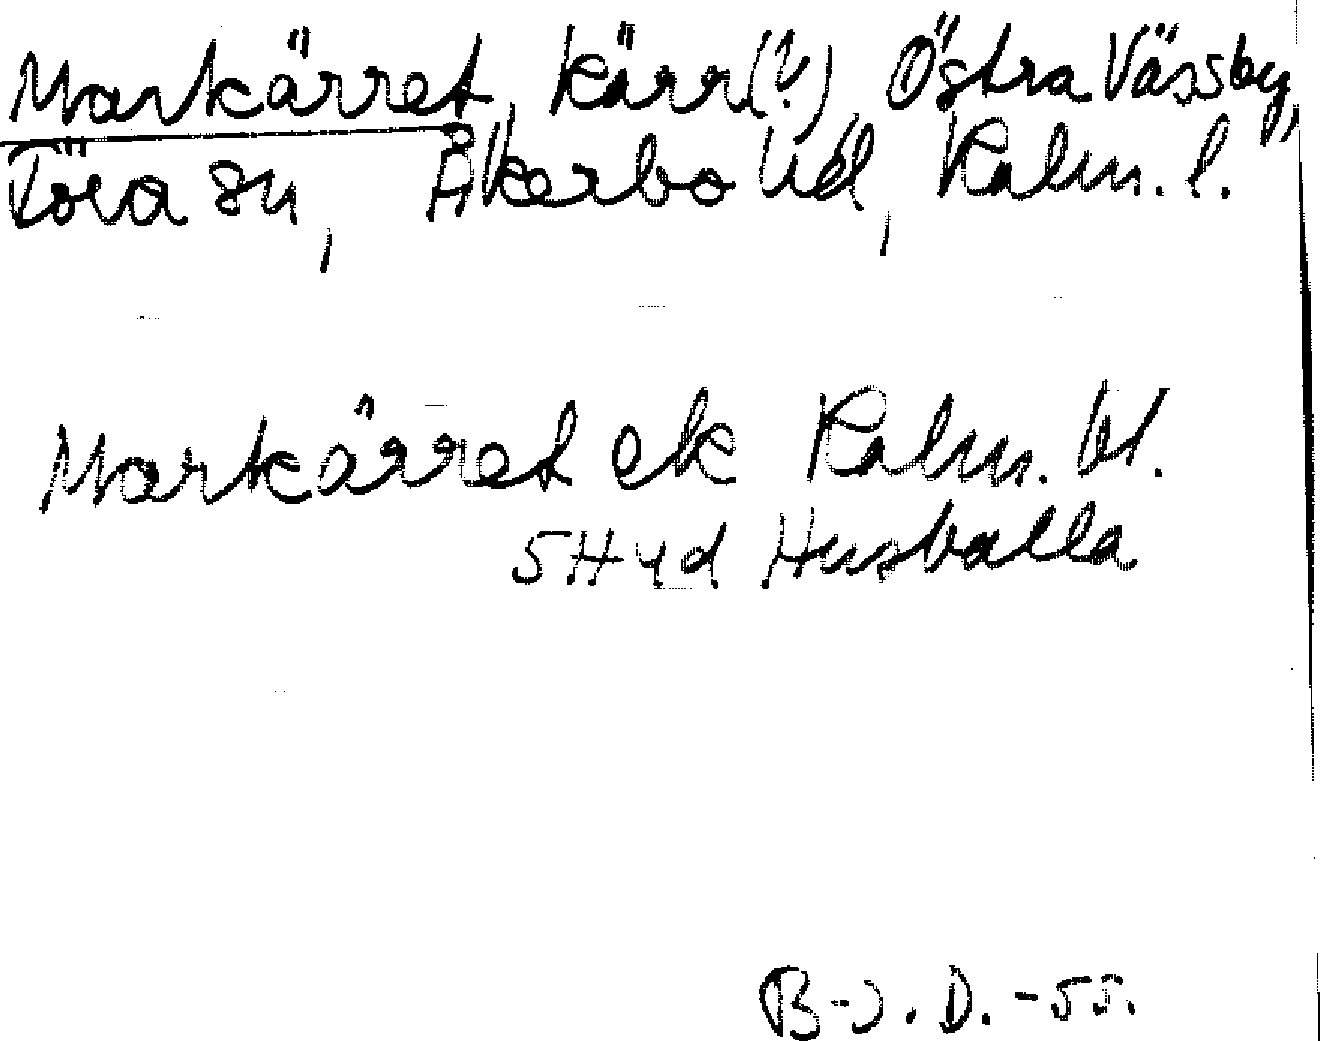 Markärret, kärr(?) Östra Vässby,
Föra sn, Åkerbo hd, Kalm. l.
Markärret ek Kalm. bl.
5H4d Husvalla
B-J. D. -55.